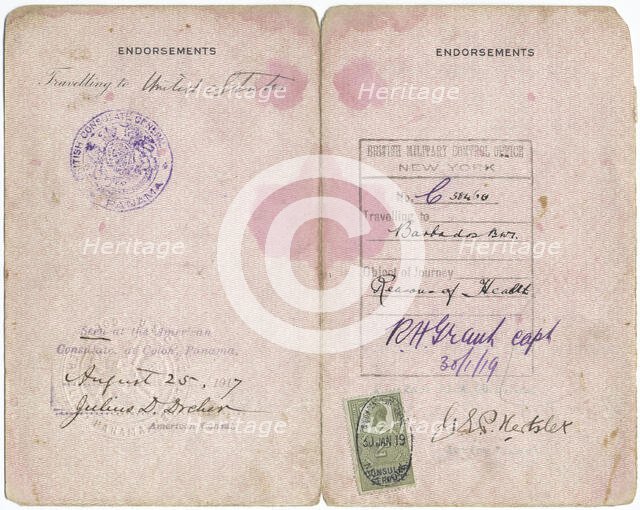 ENDORSEMENTS
Travelling to United States
BRITISH CONSULATE GENERAL
PANAMA
Seen at the American
Consulate, at Colon, Panama,
August 25, 1917
Julius D. Dreher
American Consul
ENDORSEMENTS
BRITISH MILITARY CONTROL OFFICE
NEW YORK
No. C
Travelling to
Barbados BWI.
Object of Journey
Reasons of Health
R H Grant capt
30/1/19
30 JAN 19
CONSULAR
SERVICE
Heritage
Heritage
Heritage
Heritage
Heritage
Heritage